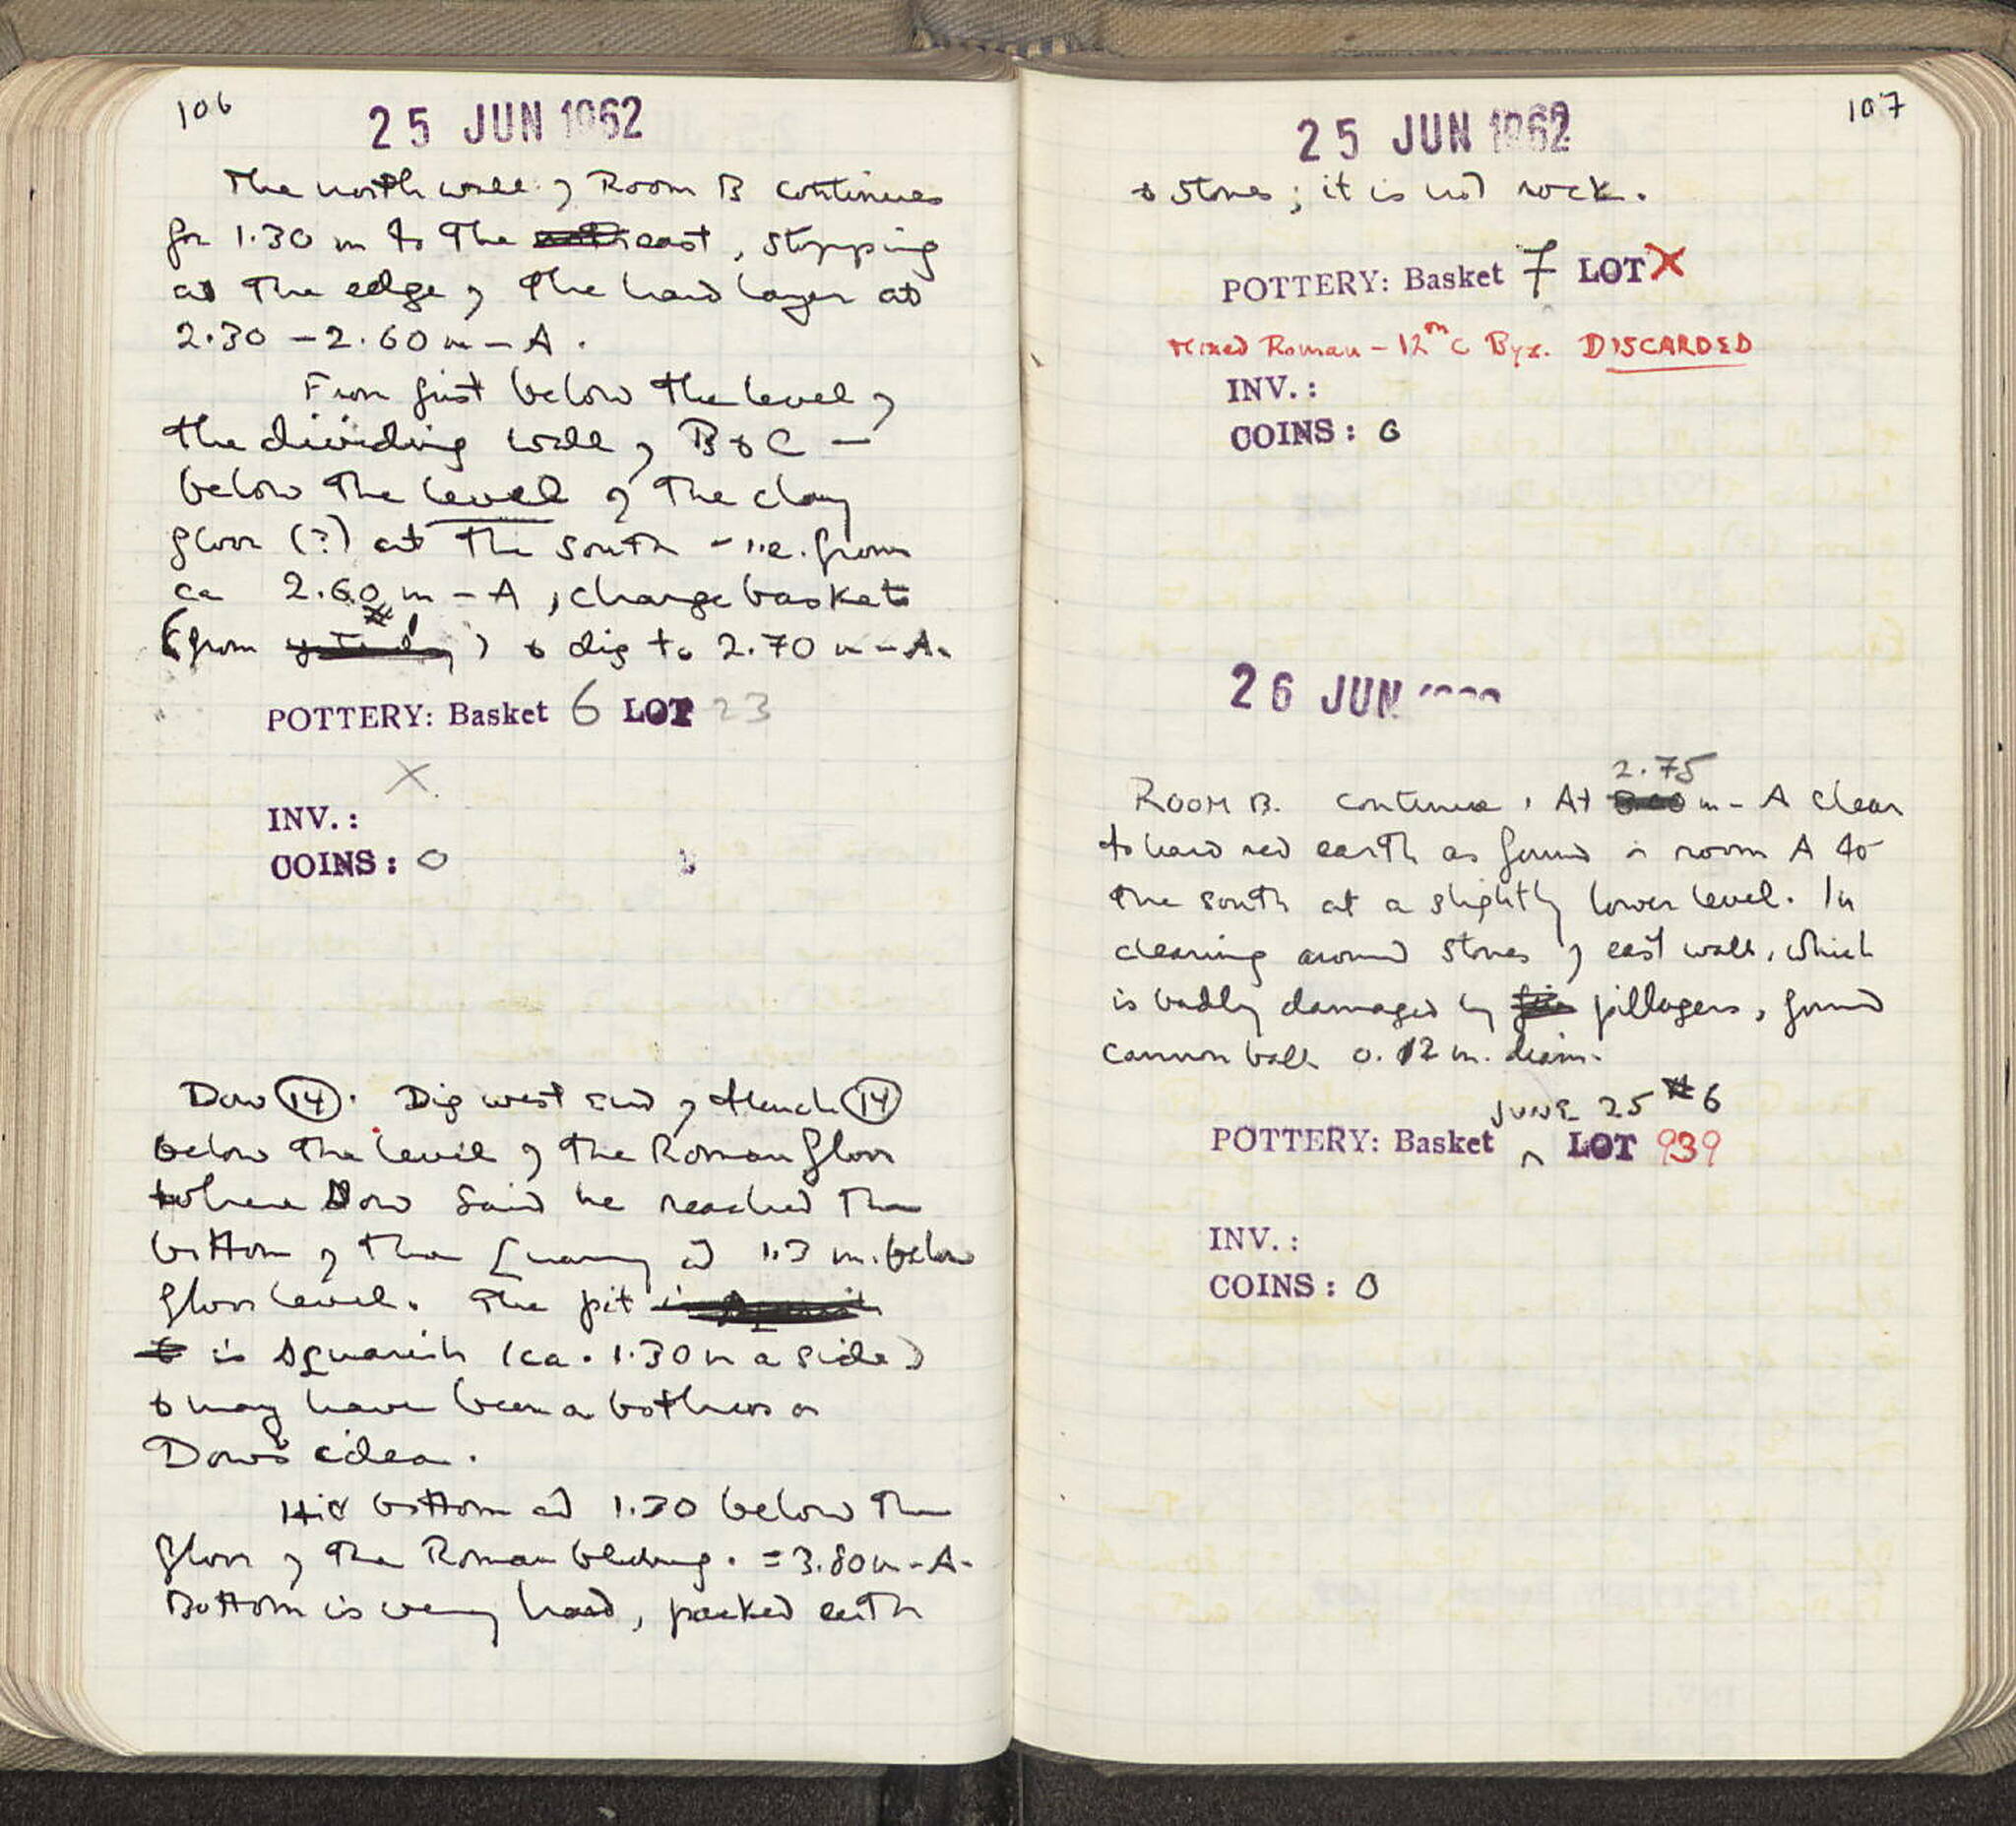 106
25 JUN 1962
The north wall of Room B continues
for 1.30 m to the east, stopping
at the edge of the hard layer at
2.30 - 2.60 m - A.
From just below the level of
the dividing wall of B & C —
below the level of the clay
floor (?) at the south - i.e. from
ca 2.60 m - A, change basket
(from ) & dig to 2.70 m - A.
POTTERY: Basket 6 LOT 23
X
INV.:
COINS: 0
Dow 14. Dig west end of trench 14
below the level of the Roman floor
where Dow said he reached the
bottom of the quarry at 1.3 m. below
floor level. The pit
is squarish (ca. 1.30 m a side)
& may have been a bothros or
Dow's idea.
Hit bottom at 1.30 below the
floor of the Roman bldng. = 3.80 m - A.
Bottom is very hard, packed earth
107
25 JUN 1962
& stones; it is not rock.
POTTERY: Basket 7 LOT X
Mixed Roman - 12th C Byz. DISCARDED
INV.:
COINS: 0
26 JUN
ROOM B. continue. At 2.75 m - A clear
to hard red earth as found in room A to
the south at a slightly lower level. In
clearing around stones of east wall, which
is badly damaged by pillagers, found
cannon ball 0.12 m. diam.
JUNE 25 #6
POTTERY: Basket ^ LOT 939
INV.:
COINS: 0